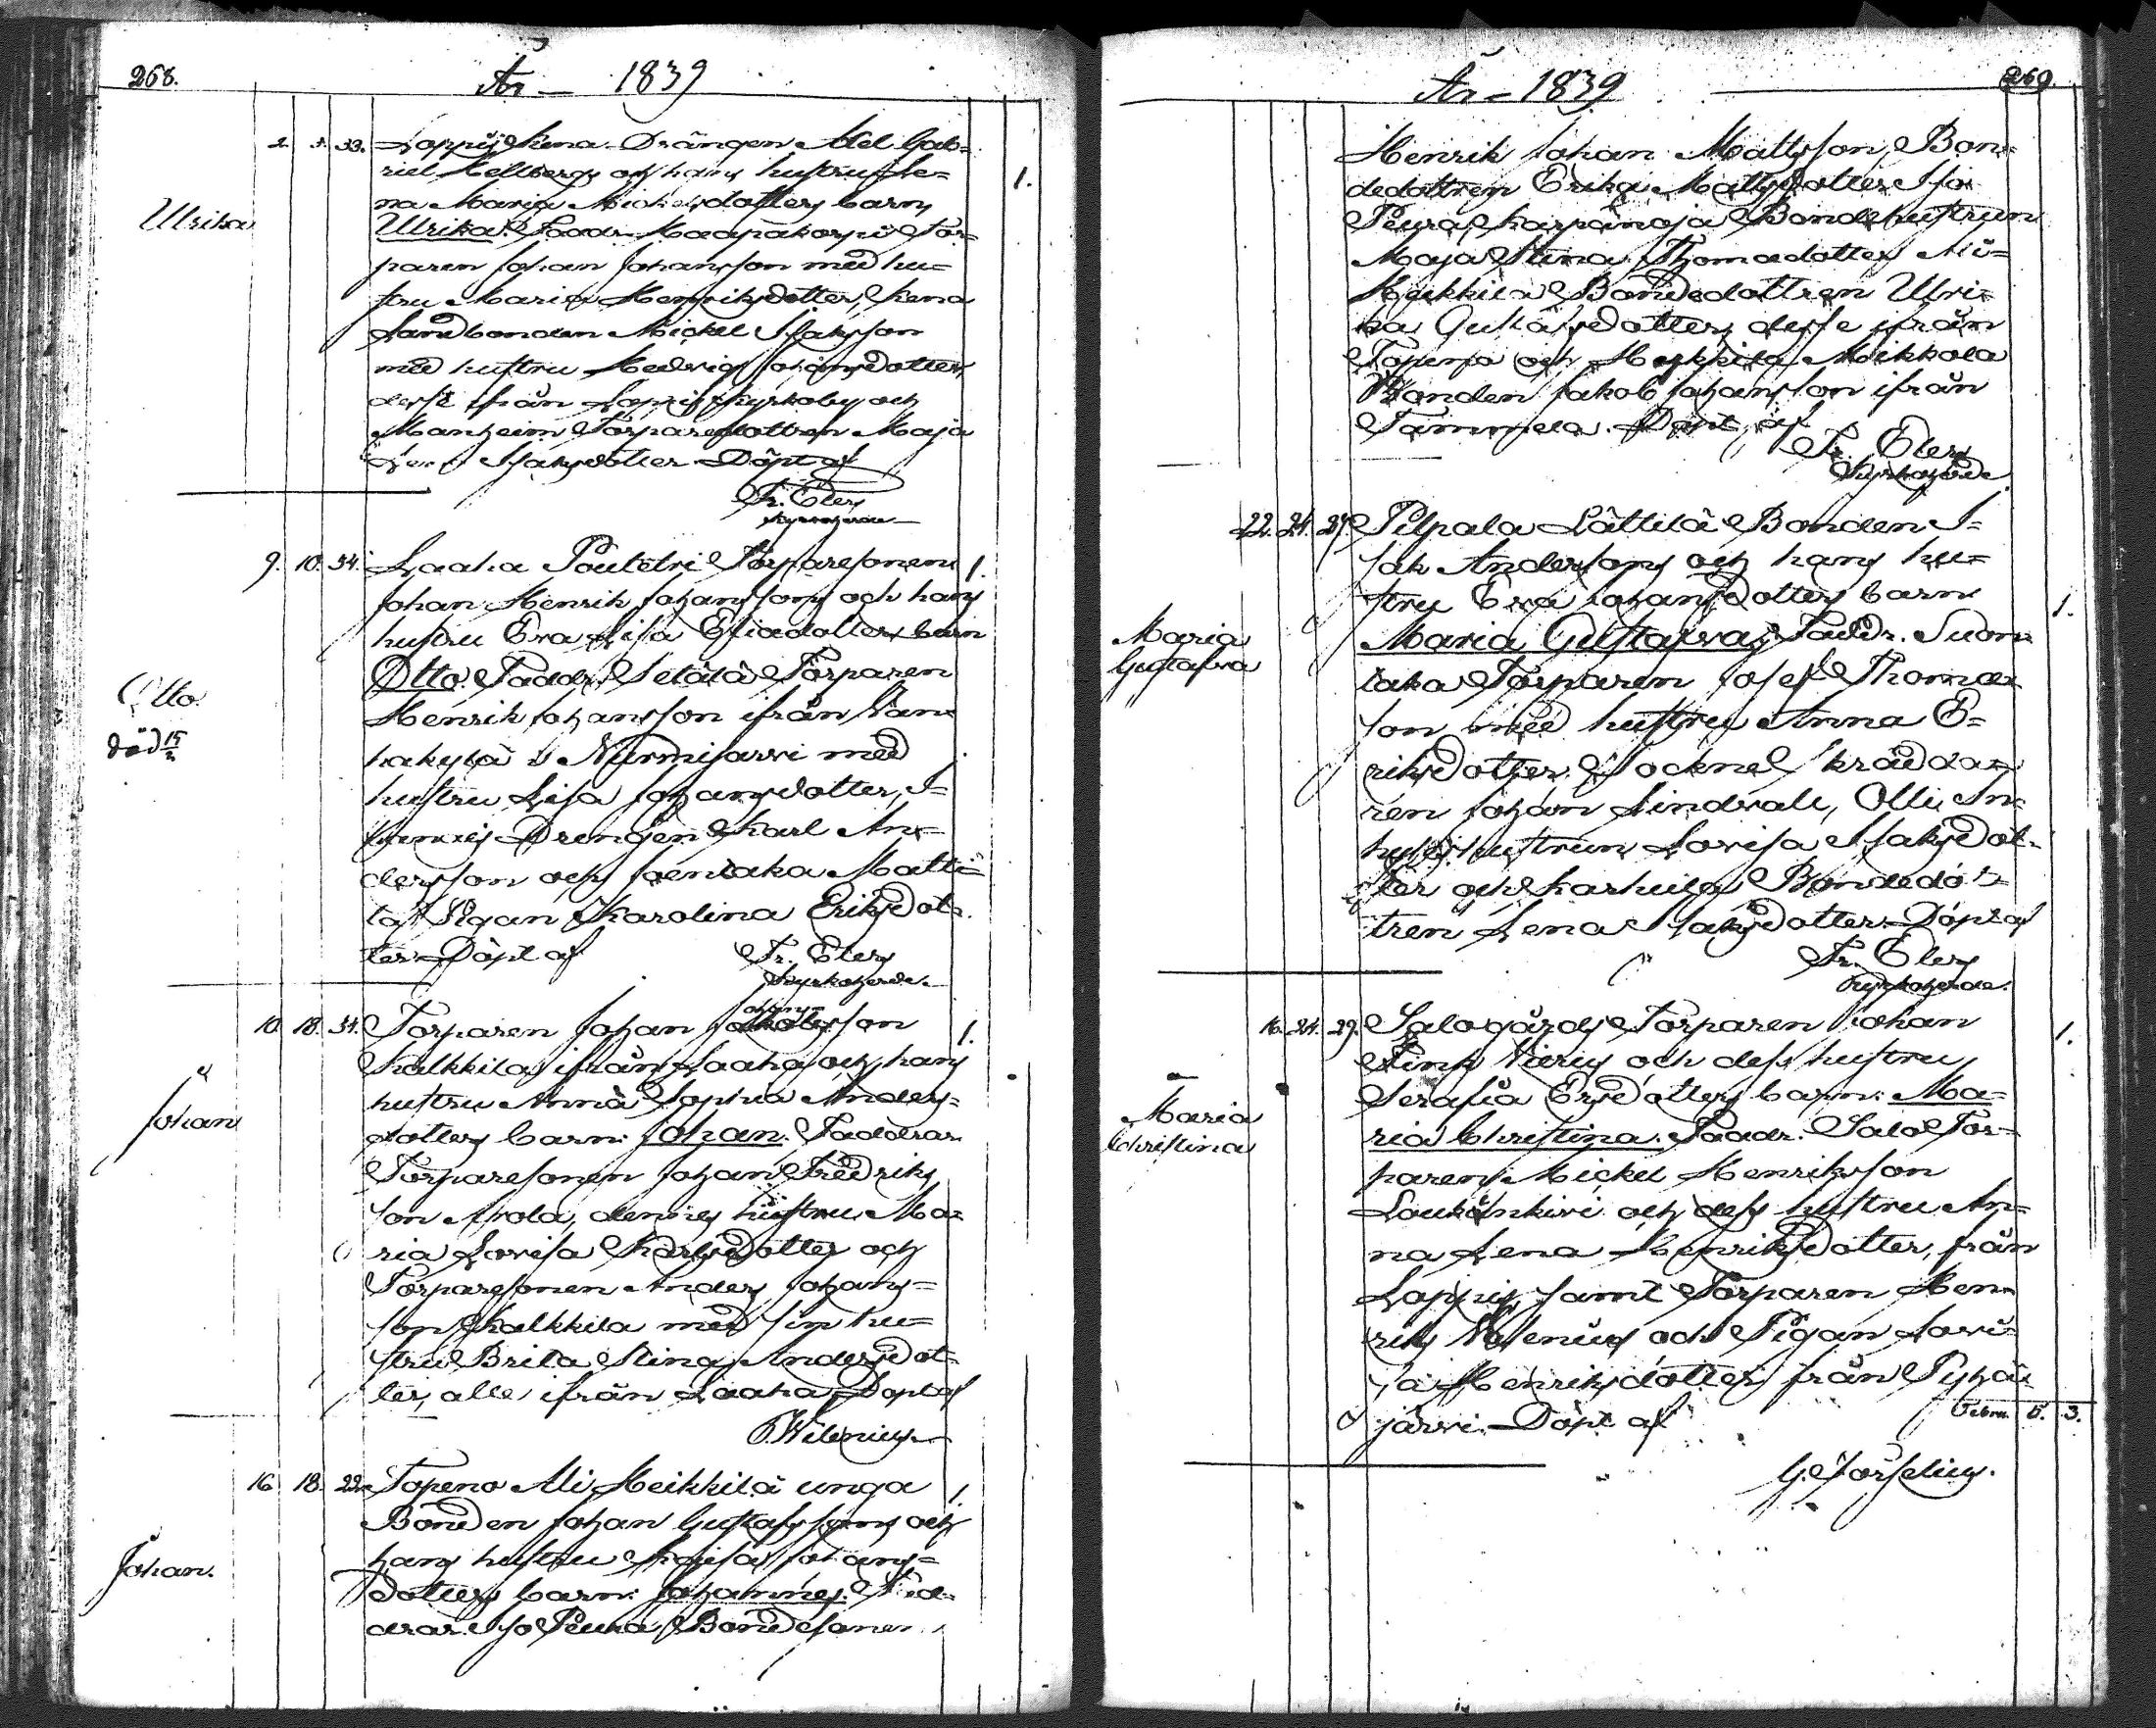 268.
År — 1839
Ulrika
2. 3. 33. Loppis Drängen Abel Gab=
riel Hellbergs och hans hustru He=
na Maria Mickelsdotters barn 1.
Ulrika. Faddr. Maapakorpi Tor=
paren Johan Johansson med hu=
stru Maria Henriksdotter,
Landbonden Mickel Isaksson
med hustru Hedvig Johansdotter,
desse ifrån Loppis Kyrkoby och
Manheim Torparedottren Maja
Isaksdotter Döpt af
Fr. Elers
Kyrkoherde
9. 10. 34. Laaka Torparesonen 1.
Johan Henrik Johanssons och hans
hustru Eva Lisa Eliædotters barn
Otto. Faddr. Setälä Torparen
Otto.
död 15/2
Henrik Johansson ifrån Wan=
hakylä i Nurmijärvi med
hustru Lisa Johansdotter,
Drengen Karl An=
dersson och Matti=
la Pigan Karolina Eriksdot=
ter Döpt af Fr. Elers
Kyrkoherde.
10. 18. 34. Torparen Johan Johansson 1.
Kalkkila ifrån Laaka och hans
hustru Anna Sophia Anders=
dotters barn: Johan. Faddrar
Johan
Torparesonen Johan Fredriks
son Arola, dennes hustru Ma=
ria Lovisa Karlsdotter och
Torparesonen Anders Johans=
son Kalkkila med sin hu=
stru Brita Stina Andersdot=
ter, alle ifrån Laaka Döpt af
Wilenius
16 18. 22. Topeno Ali Heikkilä unga 1.
Bonden Johan Gustafssons och
hans hustru Kajsa Johans=
Johan.
dotters barn: Johannes. Fad=
drar. Iso Peura Bondesonen
269.
År — 1839
Henrik Johan Mattsson, Bon=
dedottren Erika Mattsdotter Iso
Peura, Karpänoja Bondehustrun
Maja Stina Thomædotter Ali=
Heikkilä Bondedottren Ulri=
ka Gustafsdotter, desse ifrån
Topeno och Heikkilä Mikkola
Bonden Jakob Johansson ifrån
Tammela. Döpt af
Fr. Elers
Kyrkoherde
22. 24. 27. Pilpala Lättilä Bonden I=
sak Anderssons och hans hu=
stru Eva Johansdotters barn 1.
Maria
Gustafva
Maria Gustafva. Faddr. Suon=
taka Torparen Josef Thomæ
son med hustru Anna E=
riksdotter, Sockne Skrädda=
ren Johan Lindvall, Olli In=
hyses hustrun Lovisa Isaksdot=
ter och Karhula Bondedot=
tren Lena Isaksdotter. Döpt af
Fr. Elers
Kyrkoherde.
16. 24. 29. Salogårds Torparen Johan 1.
och dess hustru
Serafia Ersdotters barn: Ma=
Maria
Christina
ria Christina. Faddr. Salo Tor=
paren Mickel Henriksson
Laukänkivi och dess hustru An=
na Lena Henriksdotter, från
Loppis, samt Torparen Hen=
rik Valenius och Pigan Lovi=
sa Henriksdotter från Pyhä=
järvi. Döpt af Febru. 5. 3.
G. Forselius.